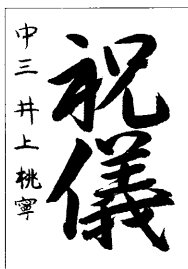 祝儀
中三 井上桃寧